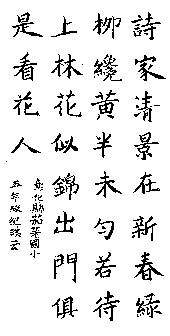 詩家清景在新春綠
柳纔黃半未勻若待
上林花似錦出門俱
是看花人
彰化縣茄荖國小
五年級紀